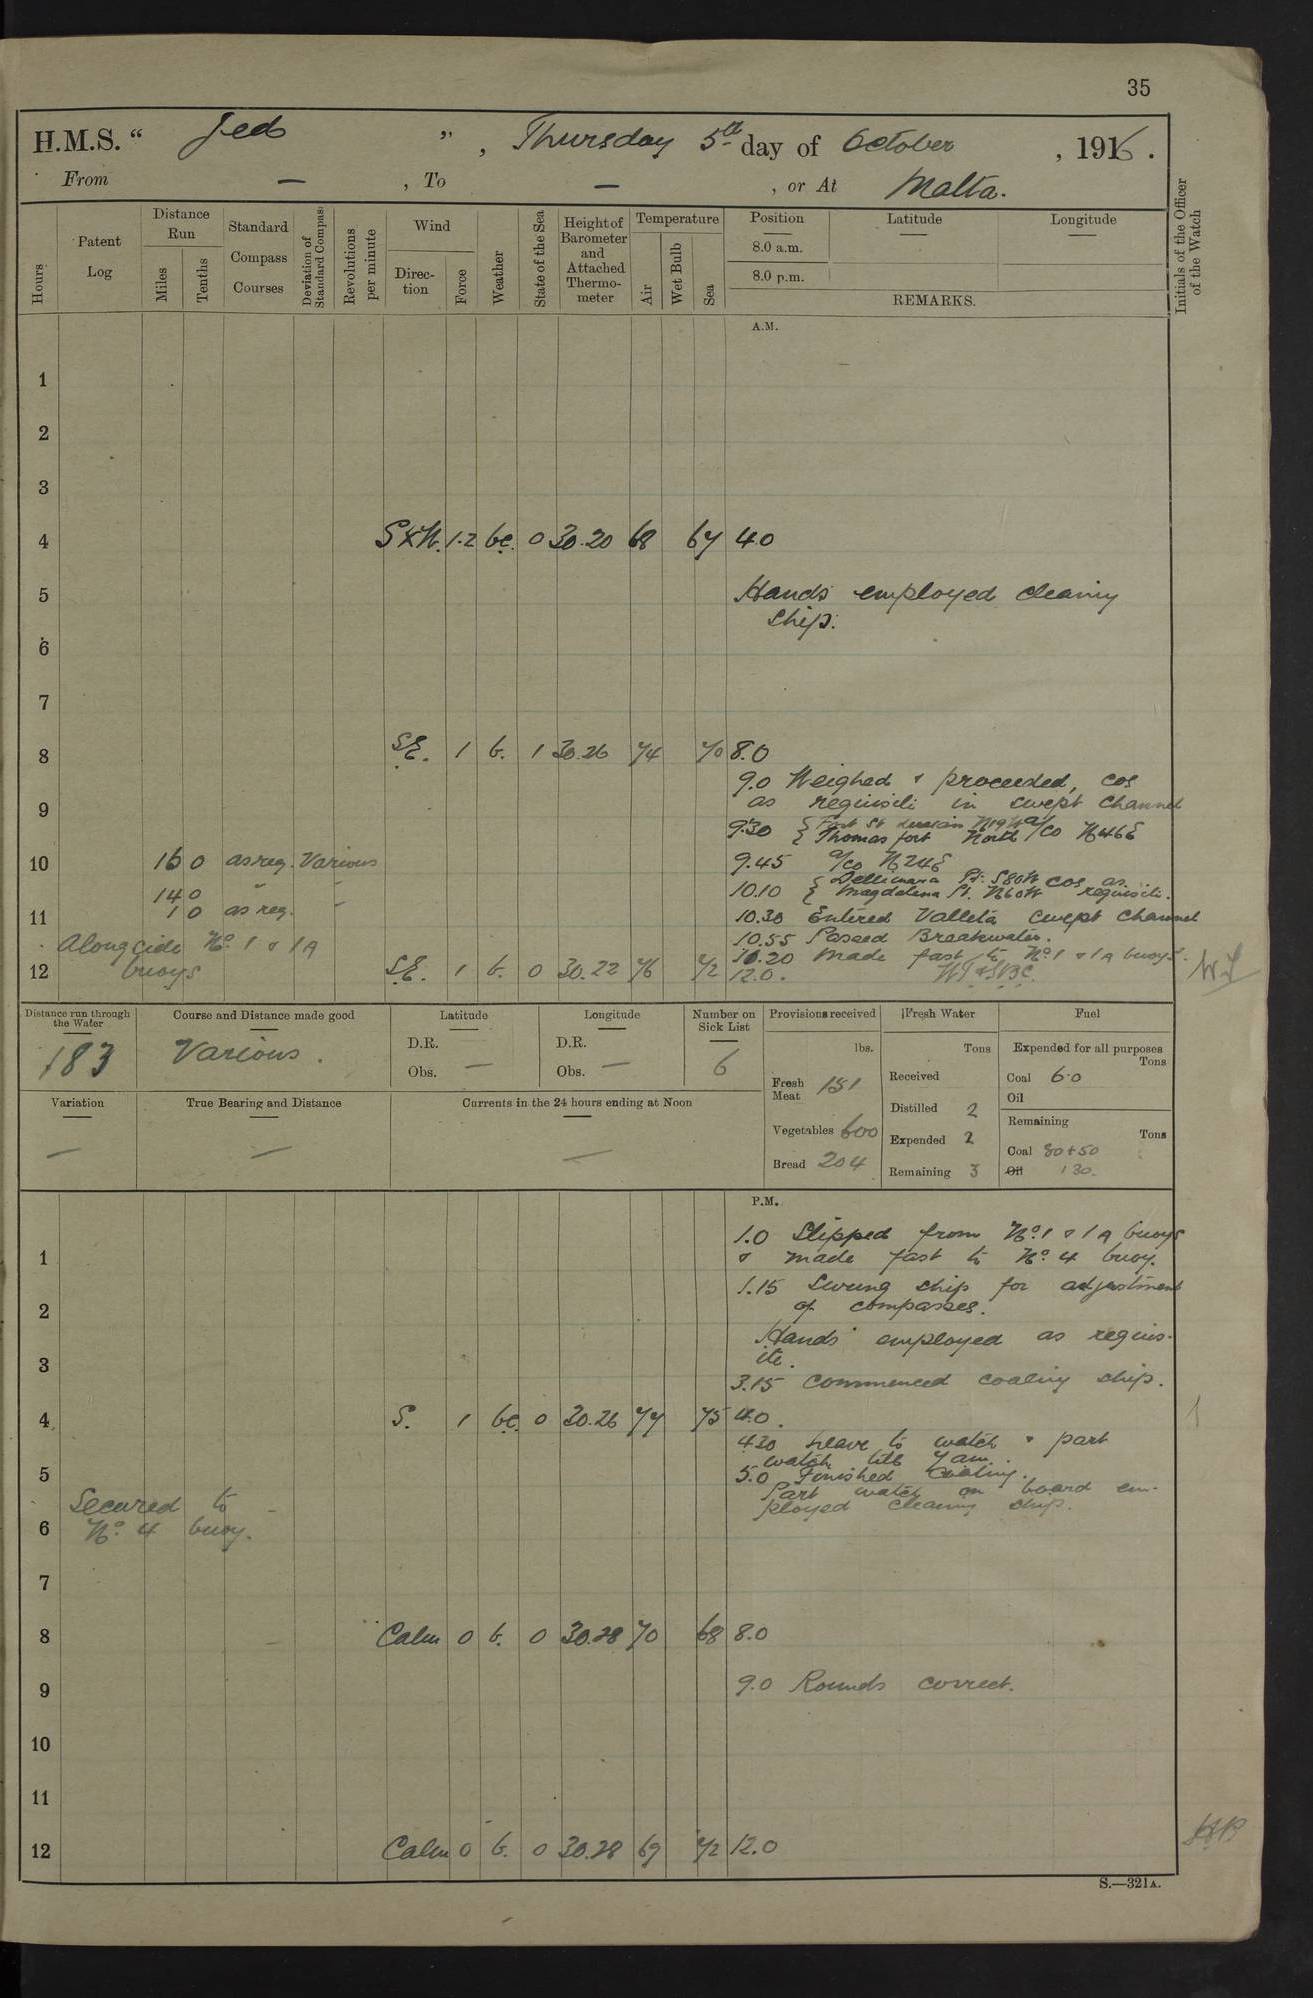 35
H.M.S. “ Jed ” , Thursday 5th day of October , 1916 .
From — , To — , or At Malta.
Hours
Patent Log
Distance Run
Miles
Tenths
Standard Compass Courses
Deviation of Standard Compass
Revolutions per minute
Wind
Direc-tion
Force
Weather
State of the Sea
Height of Barometer and Attached Thermo-meter
Temperature
Air
Wet Bulb
Sea
Position
8.0 a.m.
8.0 p.m.
Latitude
Longitude
REMARKS.
Initials of the Officer of the Watch
A.M.
1
2
3
4 1.2 bc. 0 30.20 68 67 4.0
5 Hands employed cleaning
ship.
6
7
8 SE. 1 b. 1 30.26 74 70 8.0
9.0 Weighed & proceeded, cos
9 as requisite in swept channel
9.30 { Fort St N19W a/co N46E
{ Thomas fort North
10 16 0 as req. Various 9.45 a/co N24E
14 0 " " 10.10 { Dellimara Pt: S80W cos as
{ Magdalena St. N60W requisite.
11 1 0 as req. " 10.30 Entered Valleta swept channel
Alongside No. 1 & 1A 10.55 Passed Breakwater.
buoys 11.20 Made fast to No. 1 & 1A buoys.
12 SE. 1 b. 0 30.22 76 72 12.0.
Distance run through the Water
183
Course and Distance made good
Various.
Latitude
D.R.
Obs. —
Longitude
D.R.
Obs. —
Number on Sick List
6
Provisions received
lbs.
Fresh Meat 151
Vegetables 600
Bread 204
Fresh Water
Tons
Received
Distilled 2
Expended 2
Remaining 3
Fuel
Expended for all purposes
Tons
Coal 6.0
Oil
Remaining
Tons
Coal 80+50
Oil 130.
Variation
—
True Bearing and Distance
—
Currents in the 24 hours ending at Noon
—
P.M.
1.0 Slipped from No. 1 & 1A buoys
1 & made fast to No. 4 buoy.
1.15 Swung ship for adjustment
2 of compasses.
Hands employed as requis-
3 ite.
3.15 Commenced coaling ship.
4 S. 1 bc. 0 30.26 77 75 4.0.
4.30 Leave to watch & part
watch till 7 am.
5 5.0 Finished Coaling.
Secured to Part watch on board em-
No. 4 buoy. ployed cleaning ship.
6
7
8 Calm 0 b. 0 30.28 70 68 8.0
9 9.0 Rounds correct.
10
11
12 Calm 0 b. 0 30.28 69 72 12.0
S.—321A.